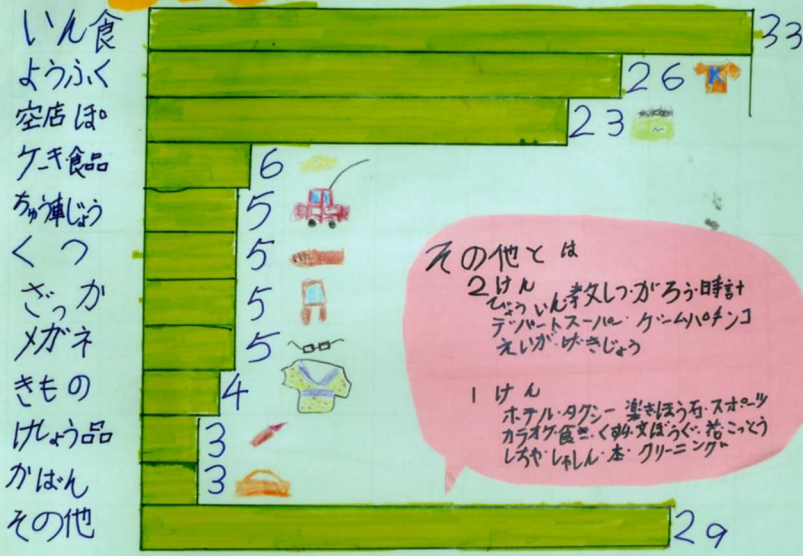 いん食 33
ようふく 26
K
空店ぽ 23
ケーキ食品 6
ちゅう車じょう 5
くつ 5
ざっか 5
メガネ 5
きもの 4
けしょう品 3
かばん 3
その他 29
その他とは
2けん
びょういん教しつ・がろう・時計
デパートスーパー・ゲームパチンコ
えいが げきじょう
1けん
ホテル・タクシー 楽きほう石・スポーツ
カラオケ・食き・くすり・文ぼうぐ・花・こっとう
しちや・しゃしん・本・クリーニング